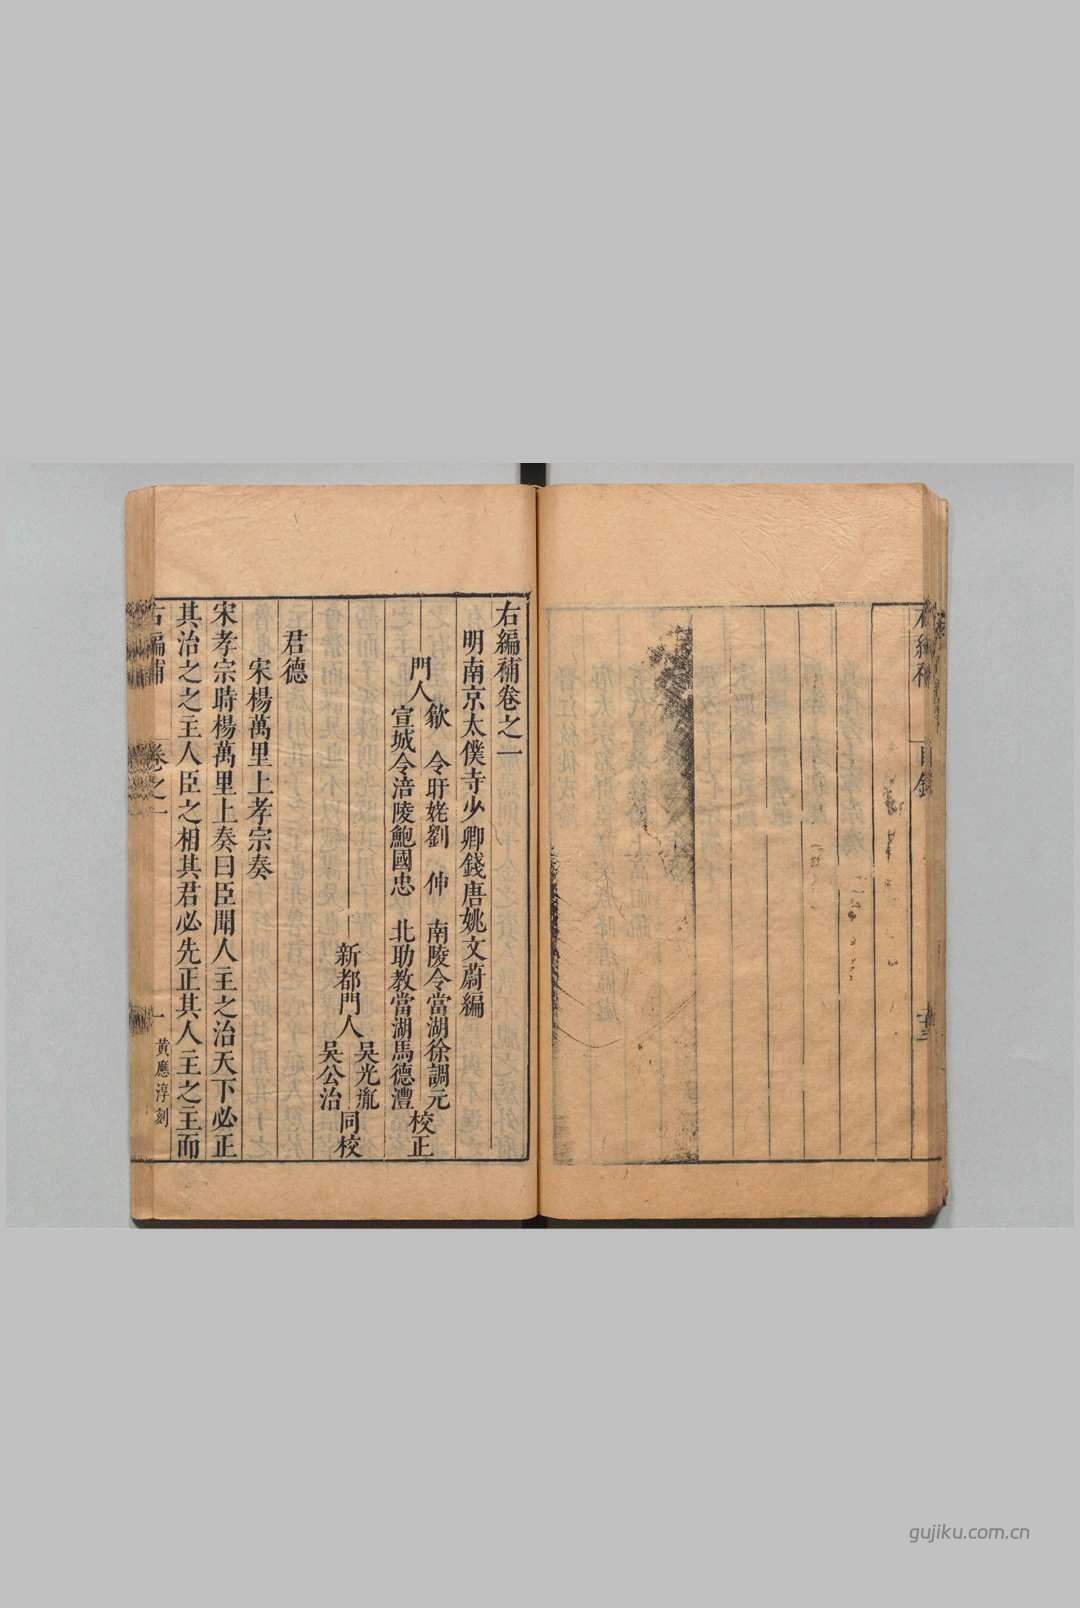 右編補 目錄 十三
右編補卷之一
明南京太僕寺少卿錢唐姚文蔚編
門人歙 令盱眙劉 伸 南陵令當湖徐調元
宣城令涪陵鮑國忠 北助教當湖馬德灃 校正
新都門人吳光胤
吳公治 同校
君德
宋楊萬里上孝宗奏
宋孝宗時楊萬里上奏曰臣聞人主之治天下必正
其治之之主人臣之相其君必先正其人主之主而
右編補 卷之一 一 黃應淳刻
gujiku.com.cn